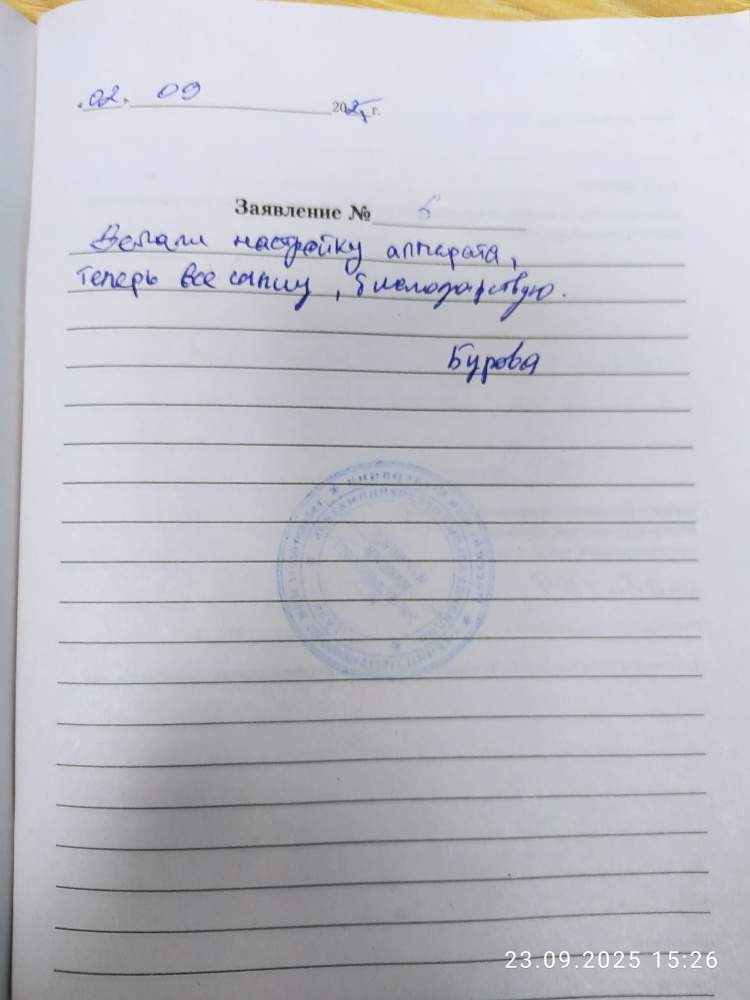 02. 09 2025 г.
Заявление № 5
Делали настройку аппарата,
теперь все слышу, благодарствую.
Бурова
23.09.2025 15:26